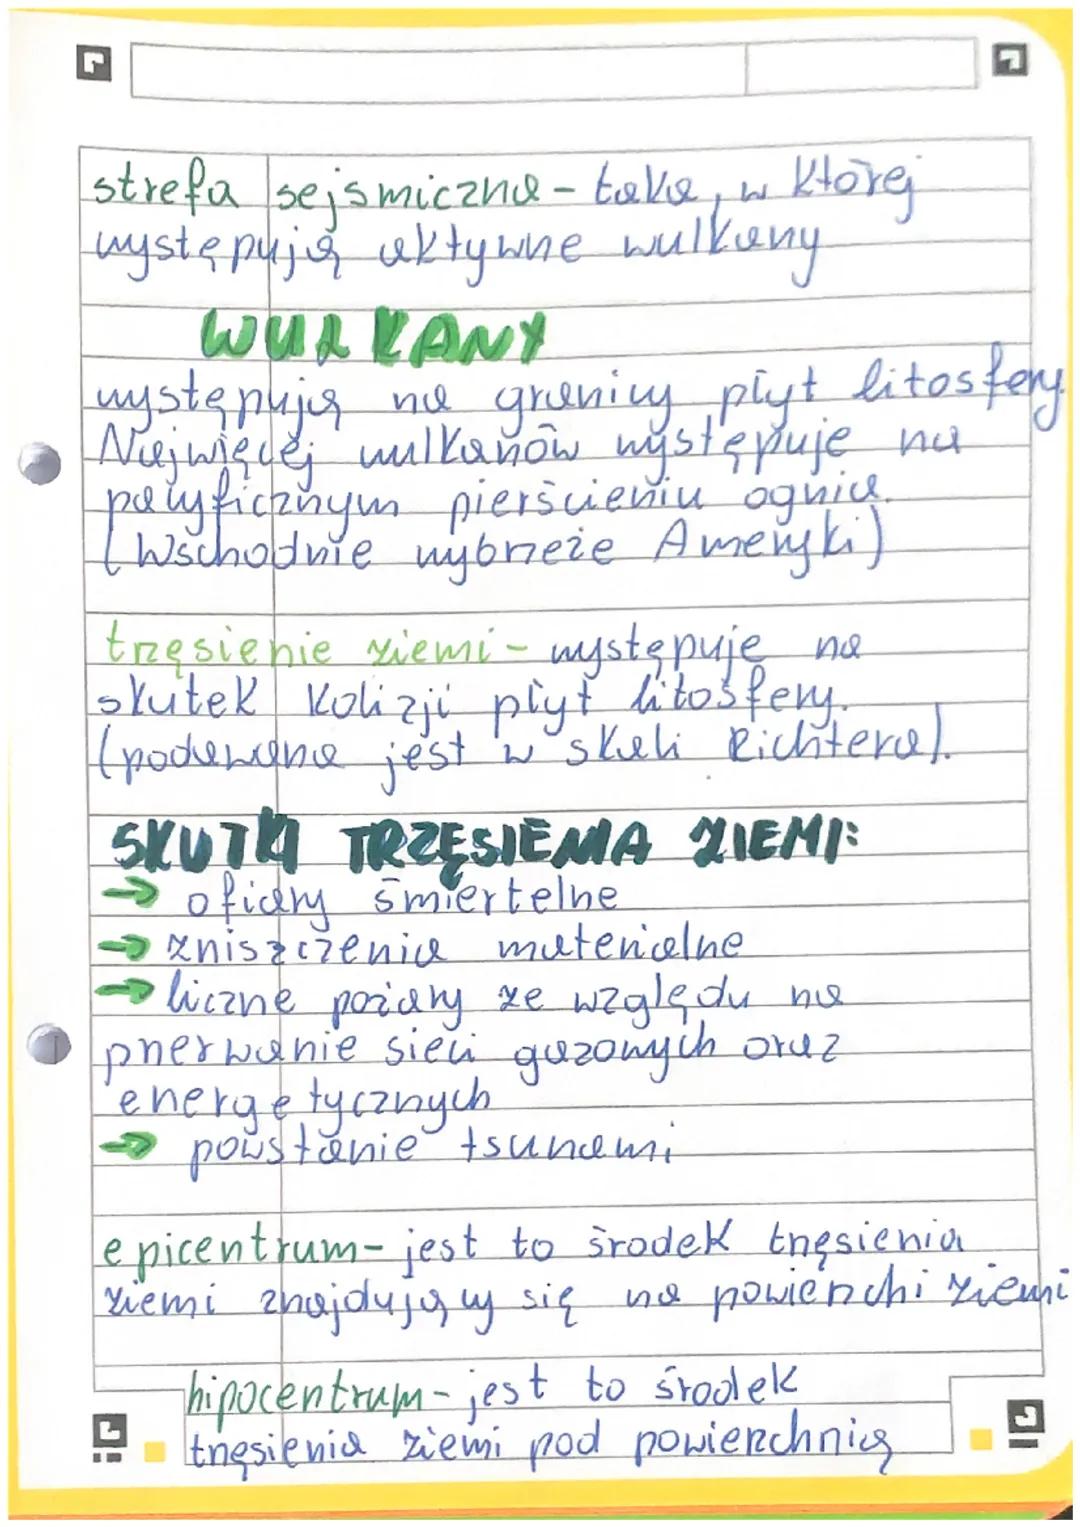 strefa sejsmiczna - taka, w której
występują aktywne wulkany
WULKANY
występują na granicy płyt litosfery.
Najwięcej wulkanów występuje na
pacyficznym pierścieniu ognia.
(Wschodnie wybrzeże Ameryki)
trzęsienie ziemi - występuje na
skutek kolizji płyt litosfery.
(podawana jest w skali Richtera).
SKUTKI TRZĘSIENIA ZIEMI:
→ ofiary śmiertelne
→ zniszczenia materialne
→ liczne pożary ze względu na
przerwanie sieci gazowych oraz
energetycznych
→ powstanie tsunami
epicentrum - jest to środek trzęsienia
ziemi znajdujący się na powierzchi ziemi
hipocentrum - jest to środek
trzęsienia ziemi pod powierzchnią